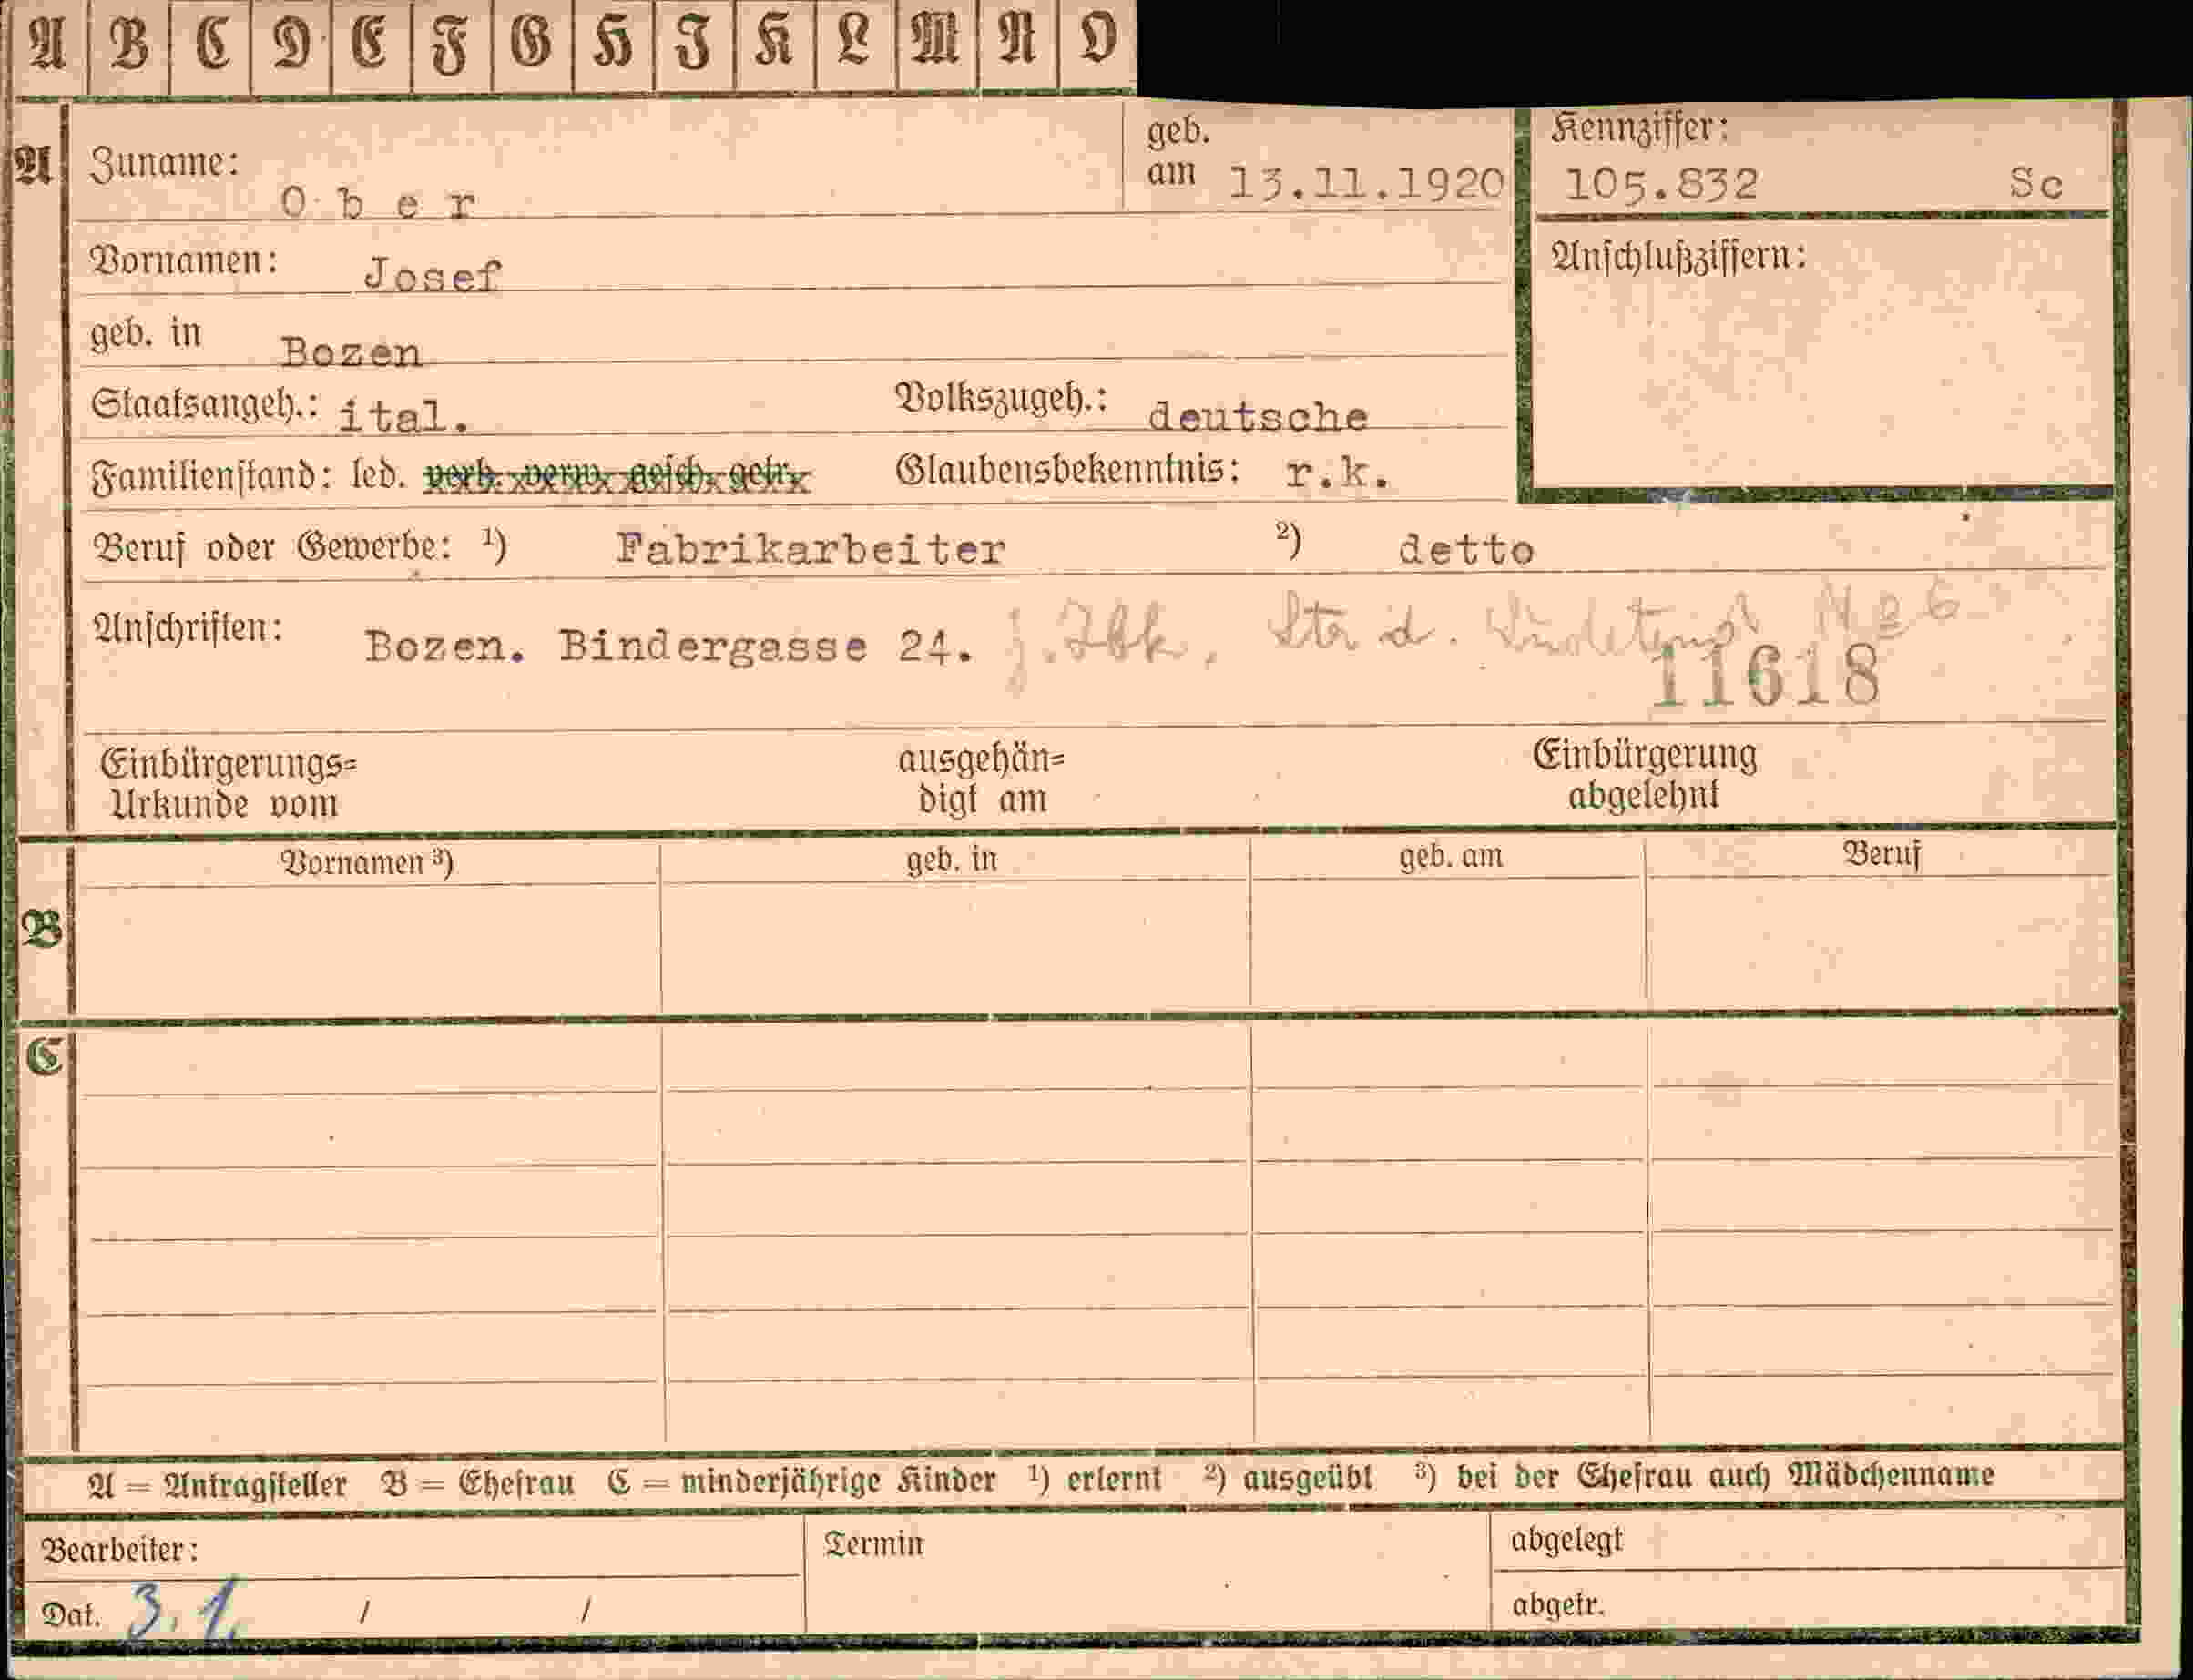 A B C D E F G H I K L M N O
A Zuname: O b e r geb. am 13.11.1920 Kennziffer: 105.832 Sc
Vornamen: Josef Anschlußziffern:
geb. in Bozen
Staatsangeh.: ital. Volkszugeh.: deutsche
Familienstand: led. verh. verw. gesch. getr. Glaubensbekenntnis: r.k.
Beruf oder Gewerbe: 1) Fabrikarbeiter 2) detto
Anschriften: Bozen. Bindergasse 24. j. Ibk, Str. d. № 6
11618
Einbürgerungs= ausgehän= Einbürgerung
Urkunde vom digt am abgelehnt
Vornamen 3) geb. in geb. am Beruf
B
C
A = Antragsteller B = Ehefrau C = minderjährige Kinder 1) erlernt 2) ausgeübt 3) bei der Ehefrau auch Mädchenname
Bearbeiter: Termin abgelegt
Dat. 3. 1. / / abgetr.